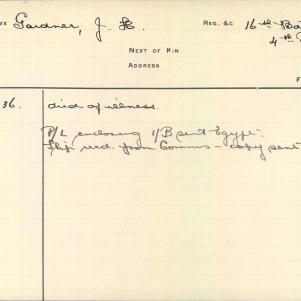 ME Gardner, J. H. REG. &C 16th Ba
4th
NEXT OF KIN
ADDRESS
F
36. died of illness.
P/L enclosing 1/B sent Egypt.
Slip recd. from Commns - copy sent